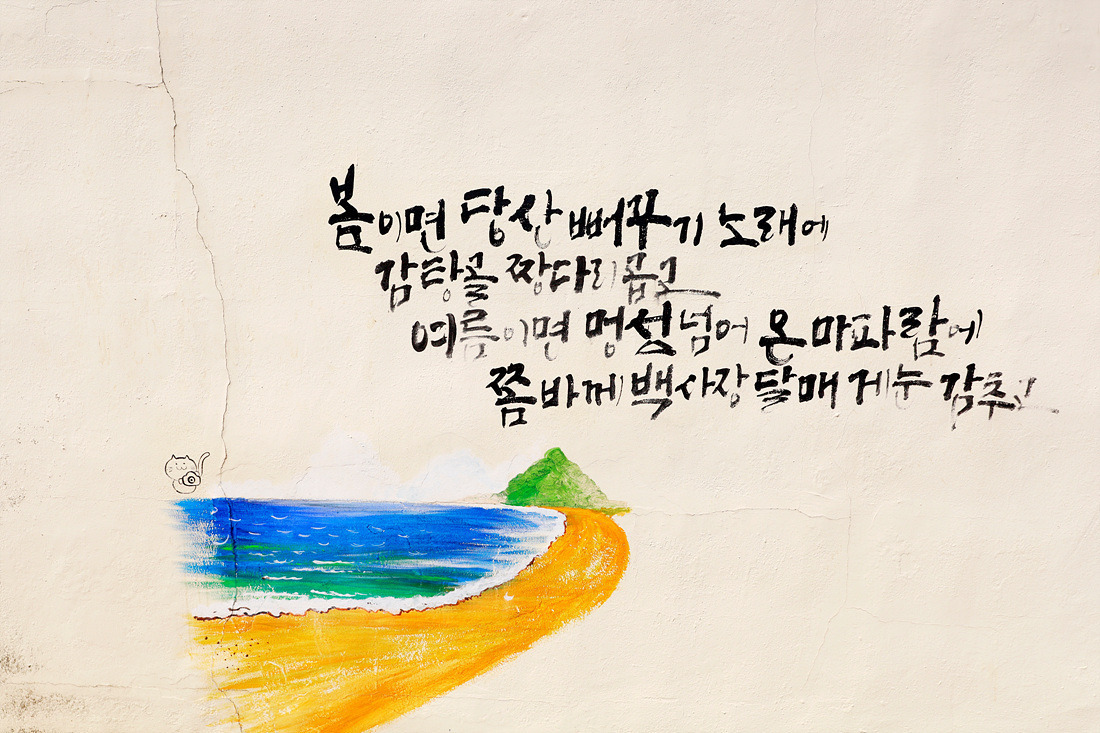 봄이면 당산 뻐꾸기 노래에
감탕골 짱다리 곱고
여름이면 멍섯넘어 온 마파람에
쫌바께 백사장 달매 게눈 감추고